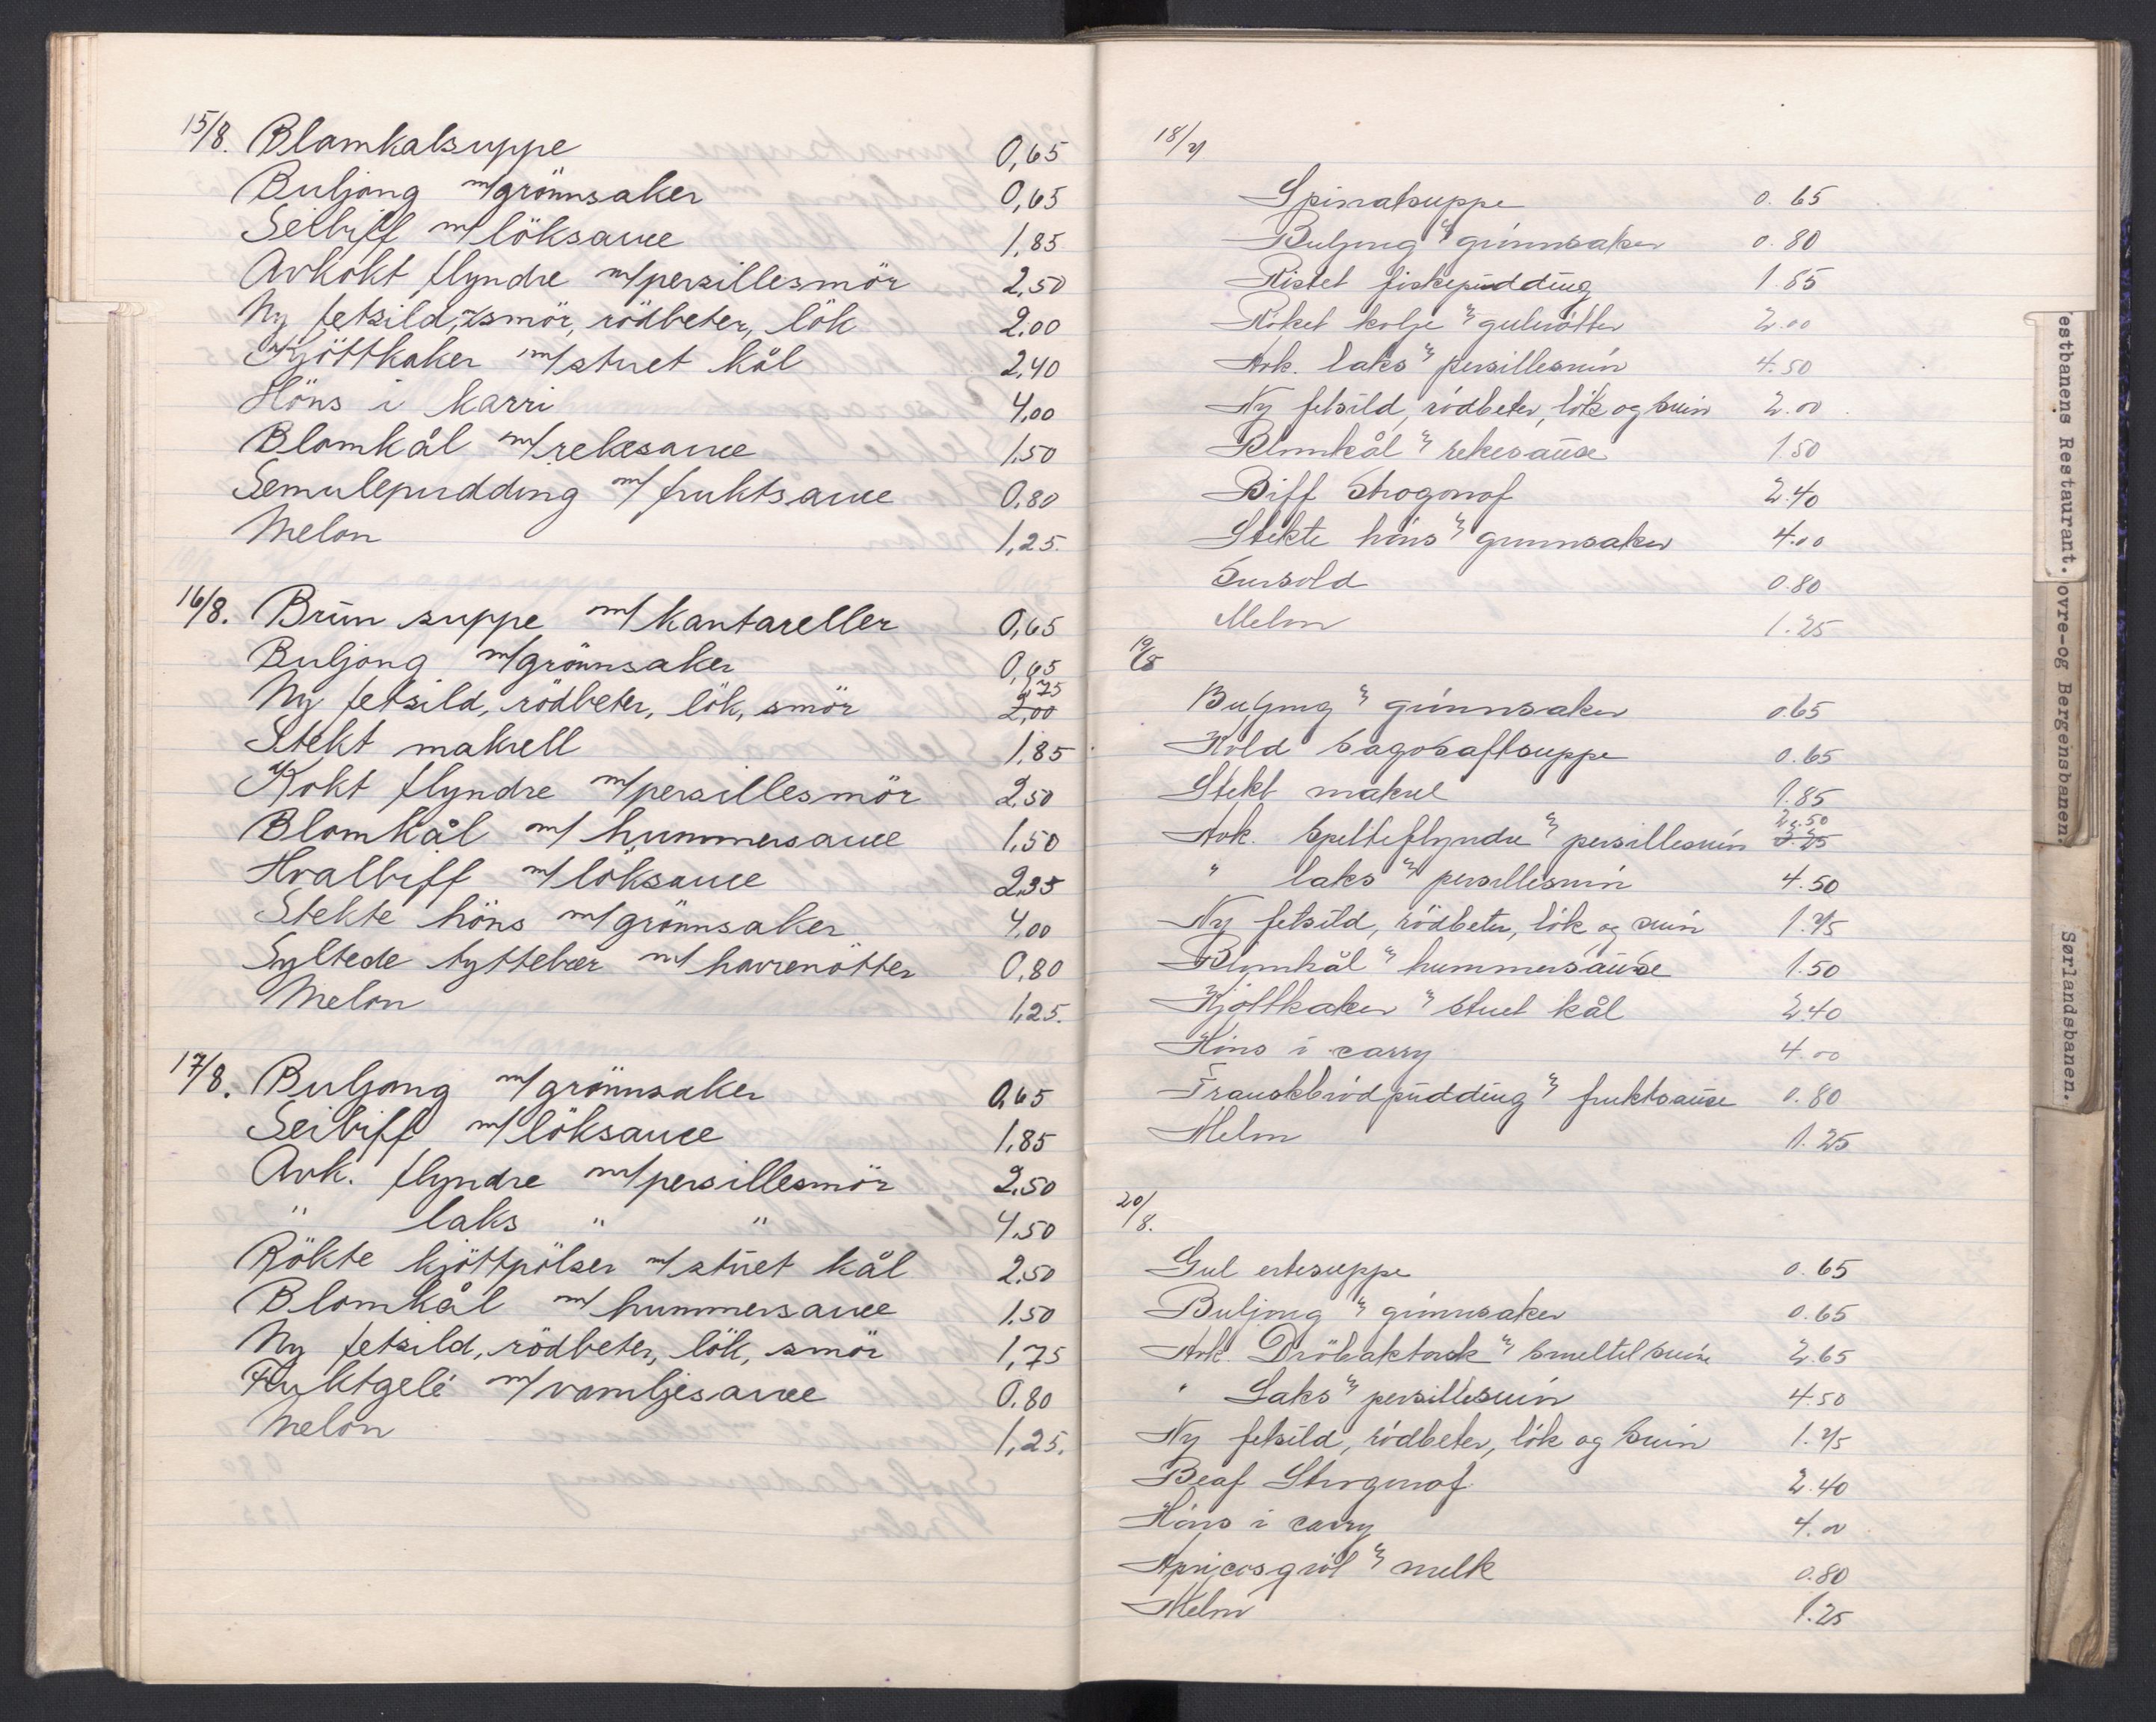 15/8. Blamkalsuppe 0,65
Buljong m/grönnsaker 0,65
Seibiff m/löksauce 1,85
Avkokt flyndre m/persillesmör 2,50
Ny fetsild, smör, rödbeter, lök 2.00
Kjöttkaker m/stuet kål 2,40
Höns i karri 4,00
Blomkål m/rekesauce 1,50
Semulepudding m/fruktsauce 0,80
Melon 1,25.
16/8. Brun suppe m/kantareller 0,65
Buljong m/grönnsaker 0,65
Ny fetsild, rödbeter, lök, smör 1,75 2,00
Stekt makrell 1,85
Kokt flyndre m/persillesmör 2,50
Blomkål m/hummersauce 1,50
Hvalbiff m/löksauce 2,35
Stekte höns m/grönnsaker 4,00
Syltede tyttebær m/havrenötter 0,80
Melon 1,25.
17/8. Buljong m/grönnsaker 0,65
Seibiff m/löksauce 1,85
Avk. flyndre m/persillesmör 2,50
" laks " " 4,50
Rökte kjöttpölser m/stuet kål 2,50
Blomkål m/hummersauce 1,50
Ny fetsild, rödbeter, lök, smör 1,75
Fruktgelé m/vaniljesauce 0.80
Melon 1,25.
18/8
Spinatsuppe 0.65
Buljong m/grönnsaker 0.80
Ristet fiskepudding 1.85
Röket kolje m/gulerötter 2.00
Avk. laks m/persillesmör 4.50
Ny fetsild, rödbeter, lök og smör 2.00
Blomkål m/rekesause 1.50
Biff Strogonof 2.40
Stekte höns m/grönnsaker 4.00
Sursold 0.80
Melon 1.25
19/8
Buljong m/grönnsaker 0.65
Kold sagosaftsuppe 0.65
Stekt makrel 1.85
Avk. Spelteflyndre m/persillesmör 2.50
" laks m/persillesmör 4.50
Ny fetsild, rödbeter, lök og smör 1.75
Blomkål m/hummersause 1.50
Kjöttkaker m/stuet kål 2.40
Höns i carry 4.00
Franskbrödpudding m/fruktsause 0.80
Melon 1.25
20/8.
Gul ertesuppe 0.65
Buljong m/grönnsaker 0.65
Avk. Dröbaktorsk m/smeltet smör 2.65
" Laks m/persillesmör 4.50
Ny fetsild, rödbeter, lök og smör 1.75
Beaf Strogonof 2.40
Höns i carry 4.00
Apricosgröt m/melk 0.80
Melon 1.25
estbanens Restaurant.
ovre-og Bergensbanen.
Sørlandsbanen.